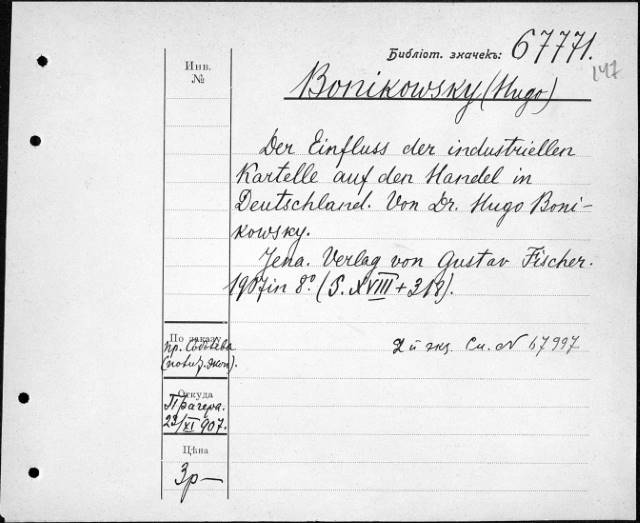 Библіот. значекъ: 67771.
147
Инв.
№
Bonikowsky (Hugo)
Der Einfluss der industriellen
Kartelle auf den Handel in
Deutschland. Von Dr. Hugo Boni-
kowsky.
Jena. Verlag von Gustav Fischer.
1907 in 8º. (S. XVIII + 318).
По заказу
пр.
2й экз. См. № 67997
Откуда
Прагера.
23/XI 907.
Цѣна
3р —